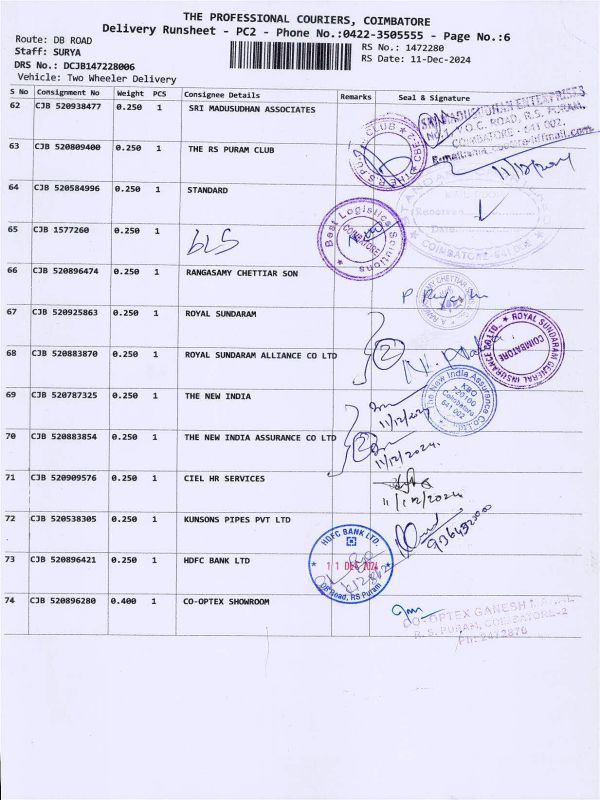 THE PROFESSIONAL COURIERS, COIMBATORE
Delivery Runsheet - PC2 - Phone No.:0422-3505555 - Page No.:6
Route: DB ROAD
RS No.: 1472280
Staff: SURYA
RS Date: 11-Dec-2024
DRS No.: DCJB147228006
Vehicle: Two Wheeler Delivery
S No Consignment No Weight PCS Consignee Details Remarks Seal & Signature
62 CJB 520938477 0.250 1 SRI MADUSUDHAN ASSOCIATES
COIMBATORE - 641 002.
11/12/2024
63 CJB 520809400 0.250 1 THE RS PURAM CLUB
64 CJB 520584996 0.250 1 STANDARD
65 CJB 1577260 0.250 1 BLS
Best Logistics Solutions
COIMBATORE
66 CJB 520896474 0.250 1 RANGASAMY CHETTIAR SON
67 CJB 520925863 0.250 1 ROYAL SUNDARAM
ROYAL SUNDARAM GENERAL INSURANCE CO.LTD.
COIMBATORE
68 CJB 520883870 0.250 1 ROYAL SUNDARAM ALLIANCE CO LTD
2
69 CJB 520787325 0.250 1 THE NEW INDIA
The New India Assurance Co.Ltd.
KBO
720100
Coimbatore
641 002
11/12/2024
70 CJB 520883854 0.250 1 THE NEW INDIA ASSURANCE CO LTD
2
11/12/2024
71 CJB 520909576 0.250 1 CIEL HR SERVICES
11/12/2024
72 CJB 520538305 0.250 1 KUNSONS PIPES PVT LTD
73 CJB 520896421 0.250 1 HDFC BANK LTD
HDFC BANK LTD.
11 DEC 2024
DB Road, RS Puram
74 CJB 520896280 0.400 1 CO-OPTEX SHOWROOM
CO-OPTEX GANESH
R. S. PURAM, COIMBATORE-2